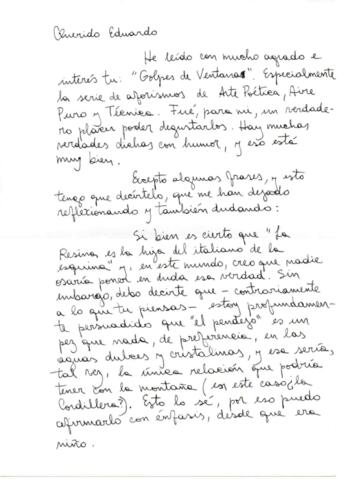 Querido Eduardo
He leído con mucho agrado e
interés tu: "Golpes de Ventanas". Especialmente
la serie de aforismos de Arte Poética, Aire
Puro y Técnica. Fué, para mi, un verdade-
ro placer poder degustarlos. Hay muchas
verdades dichas con humor, y eso está
muy bien.
Excepto algunas frases, y esto
tengo que decírtelo, que me han dejado
reflexionando y también dudando:
Si bien es cierto que "La
Resina es la hija del italiano de la
esquina" y, en este mundo, creo que nadie
osaría poner en duda esa verdad. Sin
embargo, debo decirte que - contrariamente
a lo que tu piensas - estoy profundamen-
te persuadido que "el pendejo" es un
pez que nada, de preferencia, en las
aguas dulces y cristalinas, y esa sería,
tal vez, la única relación que podría
tener con la montaña (en este caso ¿la
Cordillera?). Esto lo sé, por eso puedo
afirmarlo con énfasis, desde que era
niño.